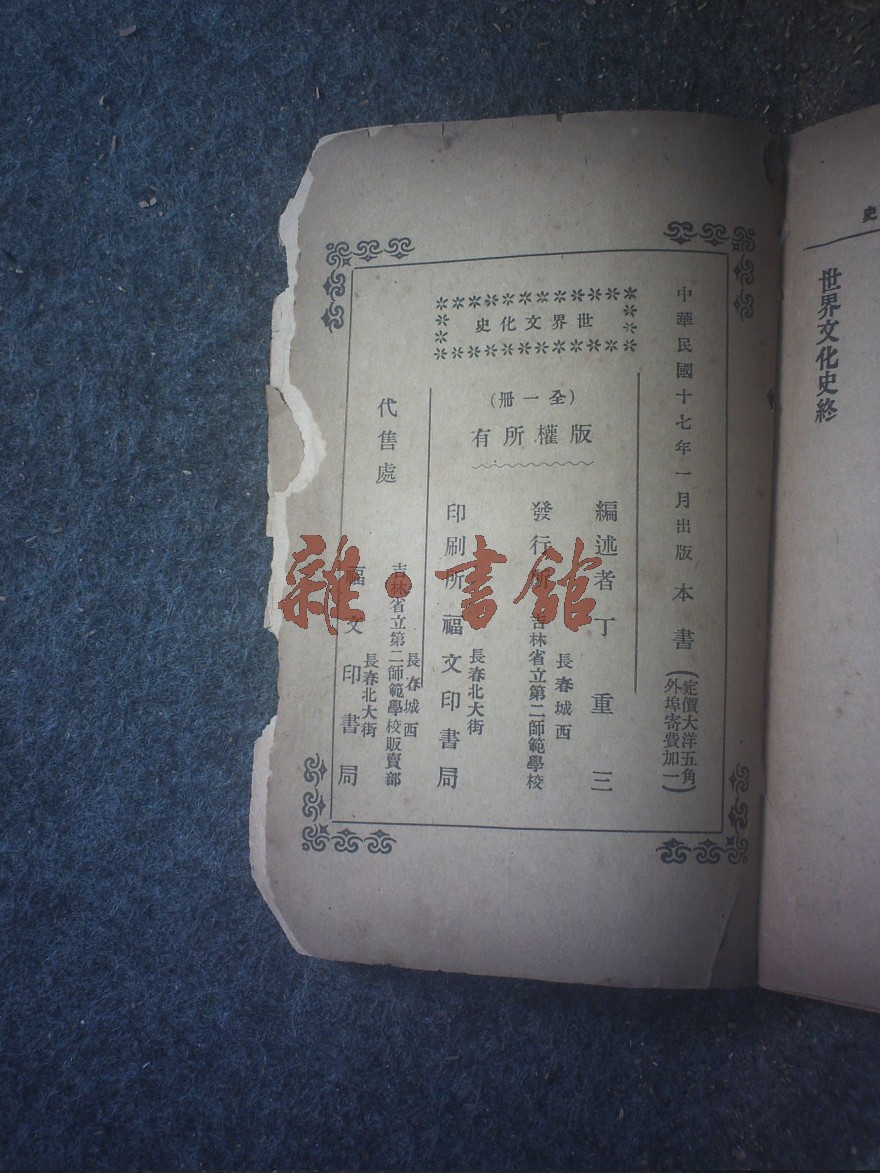 史
世界文化史終
中華民國十七年一月出版
本書
定價大洋五角
外埠寄費加一
世界文化史
(全一冊)
版權所有
編述者丁重三
發行所
長春城西
吉林省立第二師範學校
印刷所
長春北大街
福文印書局
代售處
長春城西
吉林省立第二師範學校販賣部
長春北大街
福文印書局
雜·書館